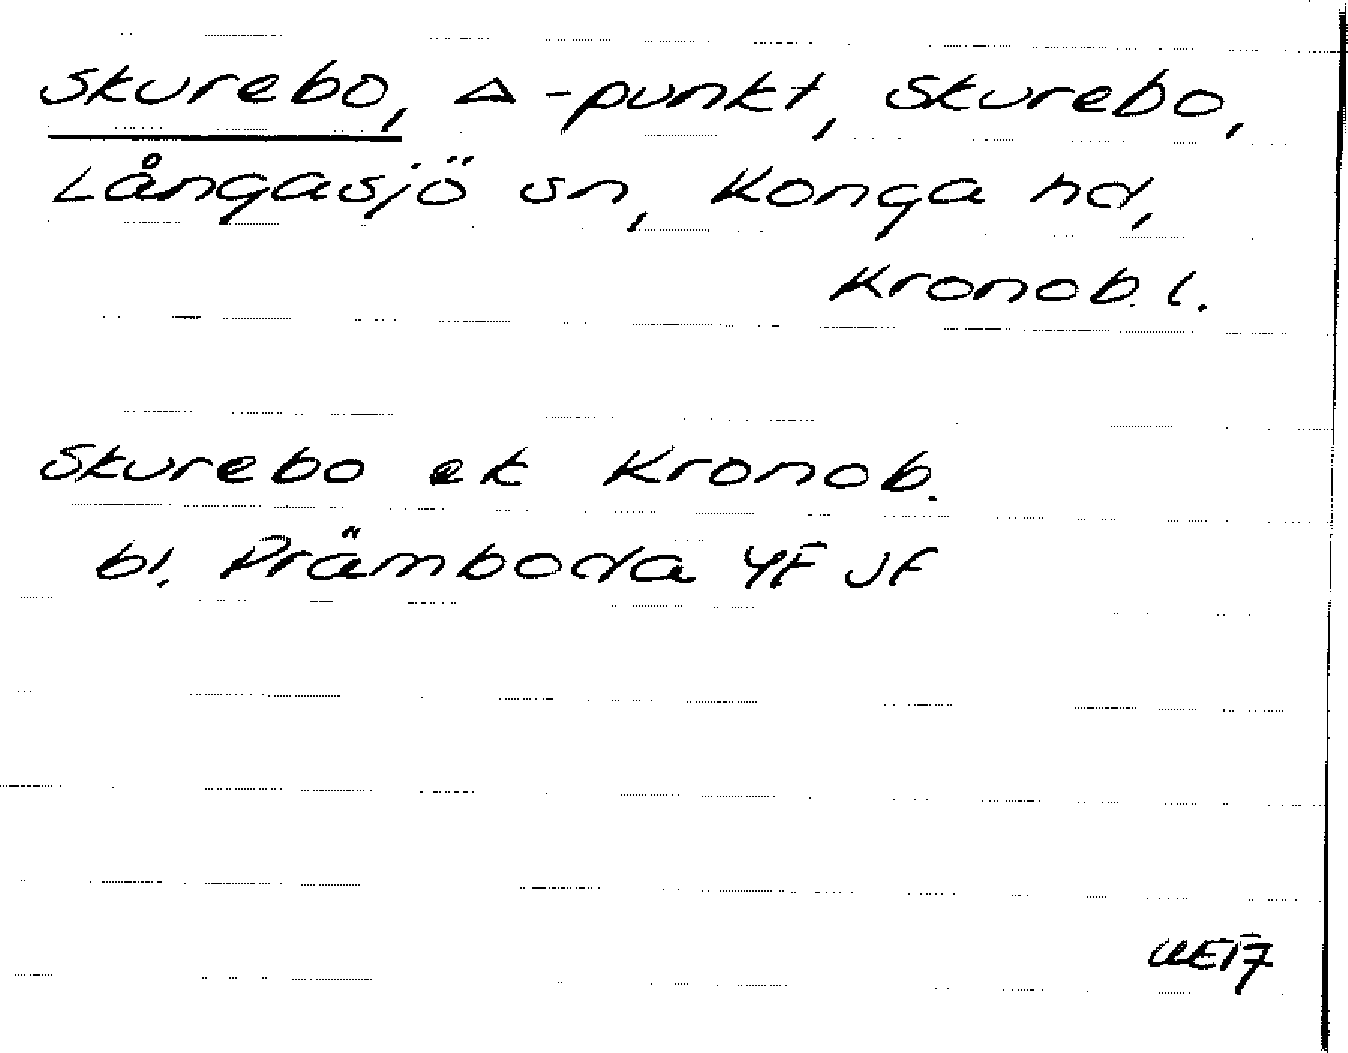 Skurebo, △-punkt, Skurebo,
Långasjö sn, Konga hd,
Kronob. l.
Skurebo ek Kronob.
bl. Prämboda YF JF